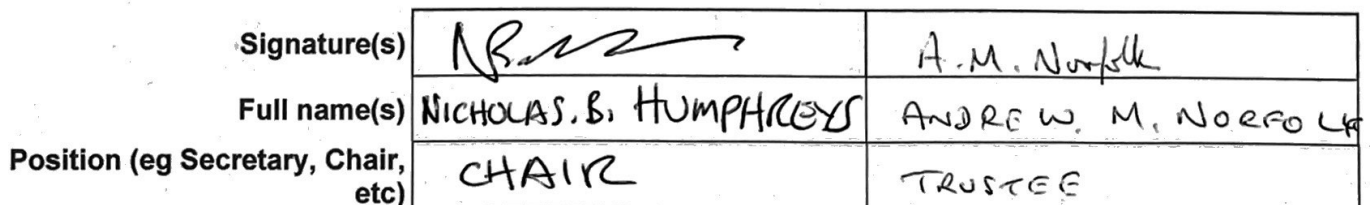 Signature(s) A.M. Norfolk
Full name(s) NICHOLAS. B. HUMPHREYS ANDREW. M. NORFOLK
Position (eg Secretary, Chair, etc) CHAIR TRUSTEE